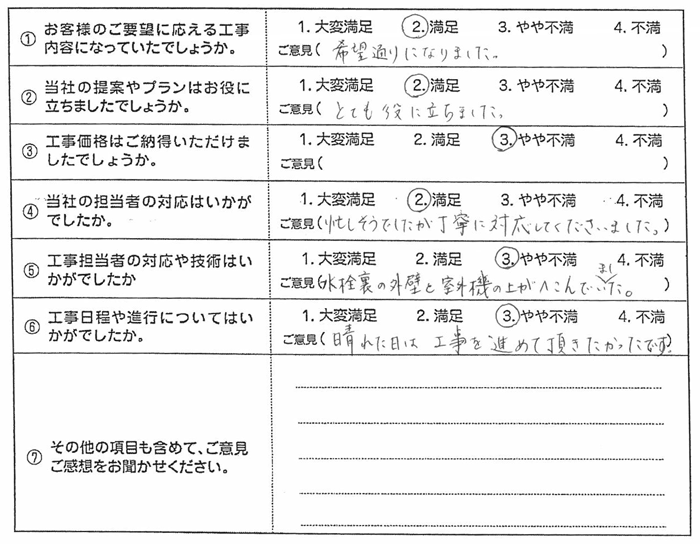 ① お客様のご要望に応える工事
内容になっていたでしょうか。
1. 大変満足 2. 満足 3. やや不満 4. 不満
ご意見( 希望通りになりました。 )
② 当社の提案やプランはお役に
立ちましたでしょうか。
1. 大変満足 2. 満足 3. やや不満 4. 不満
ご意見( とても役に立ちました。 )
③ 工事価格はご納得いただけま
したでしょうか。
1. 大変満足 2. 満足 3. やや不満 4. 不満
ご意見( )
④ 当社の担当者の対応はいかが
でしたか。
1. 大変満足 2. 満足 3. やや不満 4. 不満
ご意見(忙しそうでしたが丁寧に対応してくださいました。)
⑤ 工事担当者の対応や技術はい
かがでしたか
1. 大変満足 2. 満足 3. やや不満 4. 不満
まし
ご意見(水栓裏の外壁と室外機の上がへこんでいた。 )
⑥ 工事日程や進行についてはい
かがでしたか。
1. 大変満足 2. 満足 3. やや不満 4. 不満
ご意見( 晴れた日は 工事を進めて頂きたかったです)
⑦ その他の項目も含めて、ご意見
ご感想をお聞かせください。